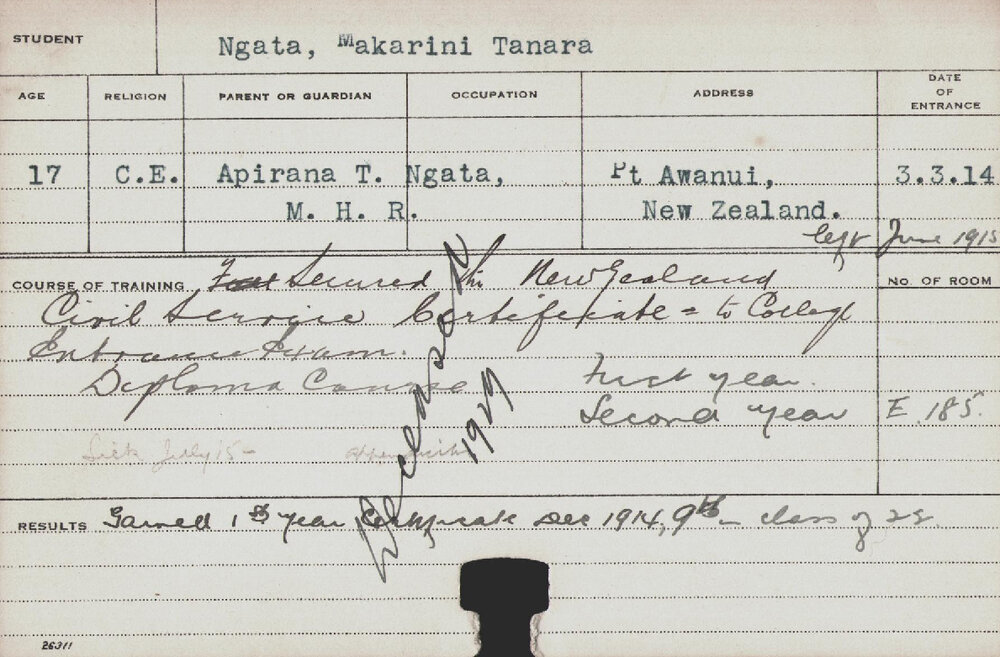 STUDENT Ngata, Makarini Tanara
AGE RELIGION PARENT OR GUARDIAN OCCUPATION ADDRESS DATE OF ENTRANCE
17 C.E. Apirana T. Ngata, Pt Awanui, 3.3.14
M. H. R. New Zealand.
left June 1915
COURSE OF TRAINING Secured the New Zealand NO. OF ROOM
Civil Service Certificate = to College
Entrance Exam.
Diploma Course First year.
Second year E 185.
Sick July 15 - Appendicitis
Deceased 1929
RESULTS Gained 1st year Certificate Dec 1914, 9th in class of 28.
26311